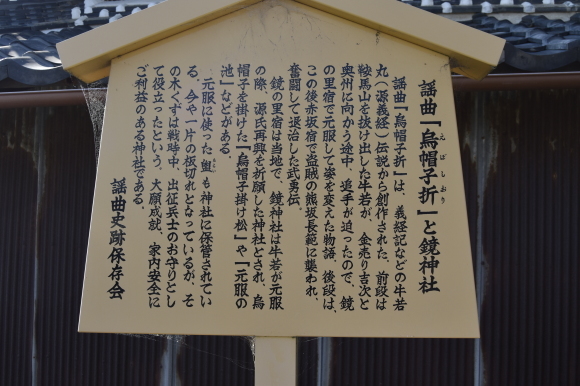 謡曲「烏帽子折」と鏡神社
えぼしおり
謡曲「烏帽子折」は、義経記などの牛若
丸（源義経）伝説から創作された。前段は
鞍馬山を抜け出した牛若が、金売り吉次と
奥州に向かう途中、追手が迫ったので、鏡
の里宿で元服して姿を変えた物語、後段は、
この後赤坂宿で盗賊の熊坂長範に襲われ、
奮闘して退治した武勇伝。
鏡の里宿は当地で、鏡神社は牛若が元服
の際、源氏再興を祈願した神社とされ、烏
帽子を掛けた「烏帽子掛け松」や「元服の
池」などがある。
元服に使った盥も神社に保管されてい
る。今や一片の板切れとなっているが、そ
の木くずは戦時中、出征兵士のお守りとし
て役立ったという。大願成就、家内安全に
ご利益のある神社である。
謡曲史跡保存会